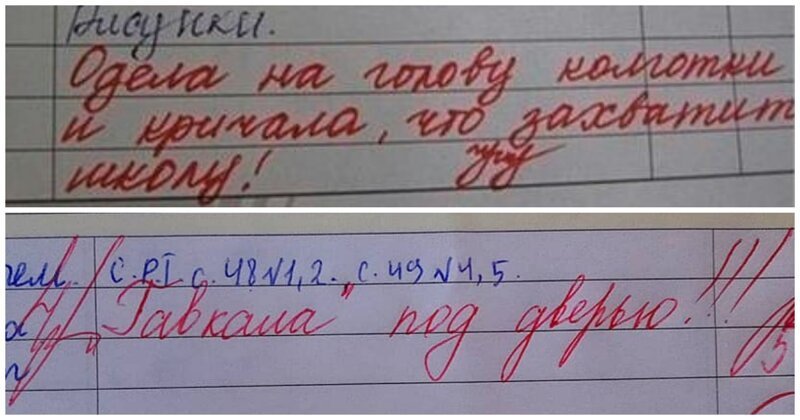 Рисунки.
Одела на голову колготки
и кричала, что захватит
школу!
чем. С.Р.I с. 48 №1, 2. с. 49 №4, 5.
"Гавкала" под дверью!!!
5